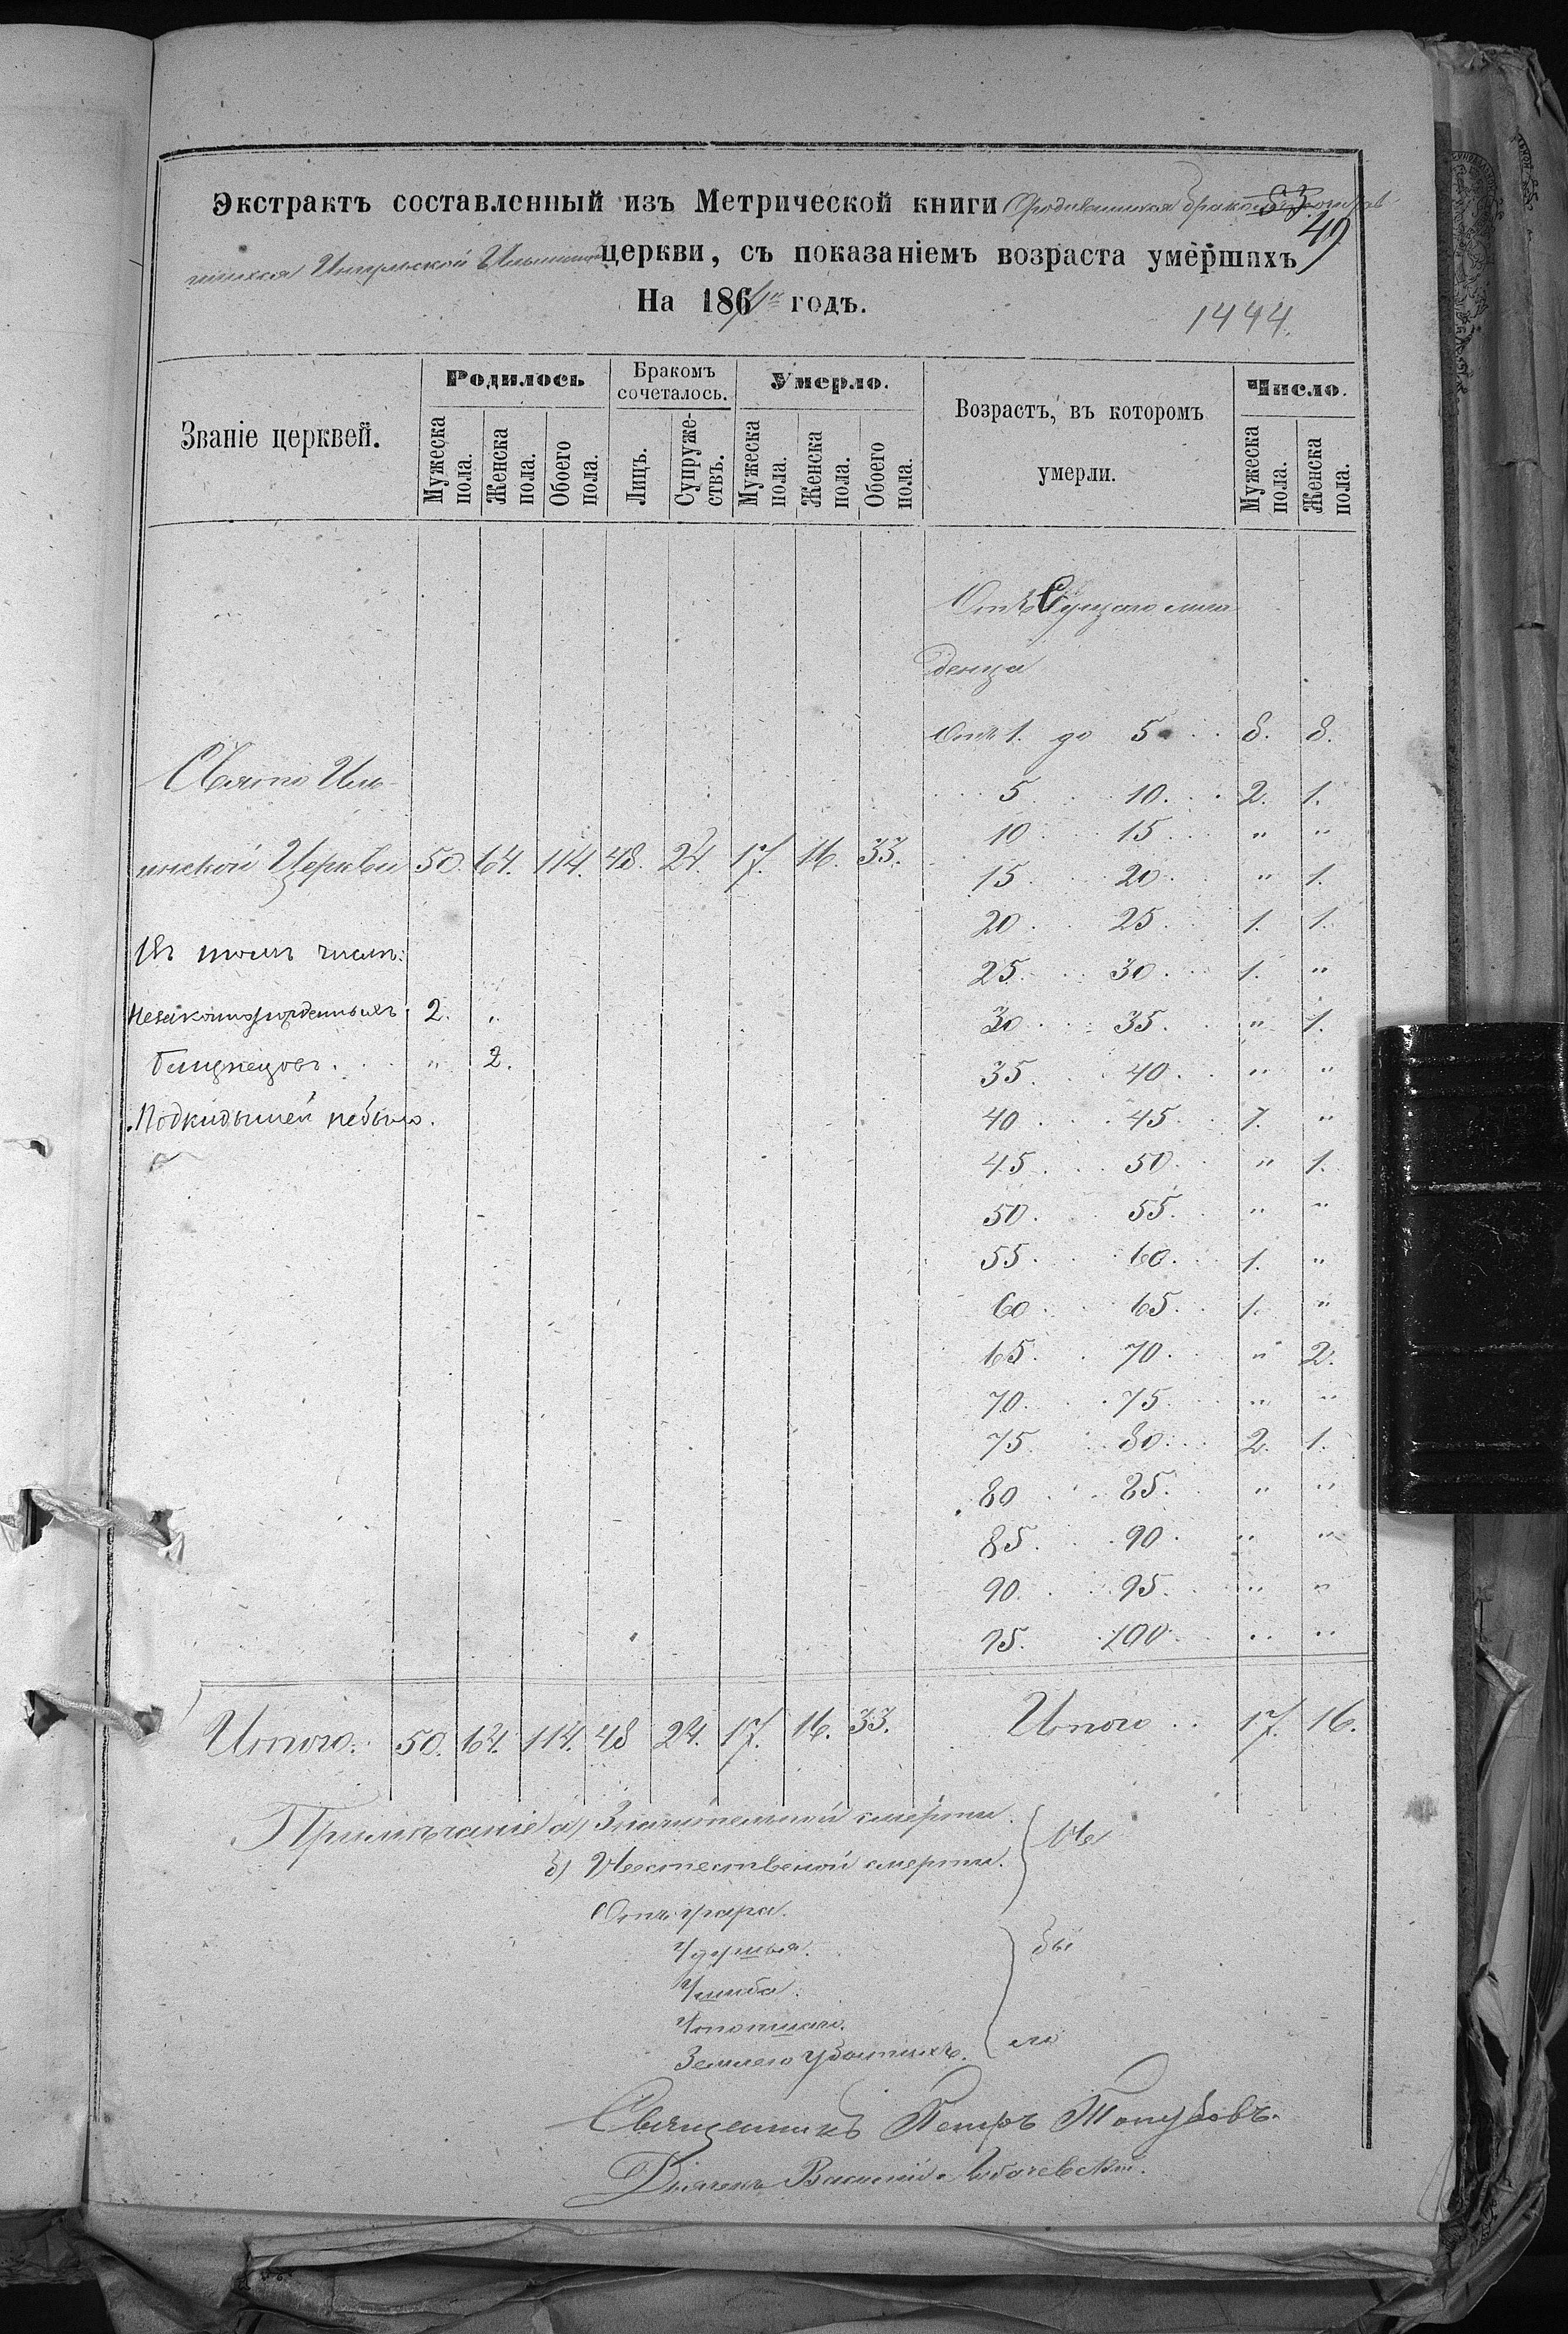 Экстрактъ составленный изъ Метрической книги О родившихся бракомъ
49
церкви, съ показаніемъ возраста умершихъ
На 186 годъ.
1494.
Званіе церквей.
Родилось
Бракомъ сочеталось.
Умерло.
Возрастъ, въ которомъ умерли.
Число.
Мужеска пола.
Женска пола.
Обоего пола.
Лицъ.
Супружествъ.
Мужеска пола.
Женска пола.
Обоего пола.
Мужеска пола.
Женска пола.
Отъ Сущаго мла
денца
Отъ 1. до 5 8. 8.
Свято Иль
5 10. 2. 1.
10 15 " "
инской Церкви 50. 64. 114. 48. 24. 17. 16. 33.
15 20 " 1.
20 25. 1. 1.
Въ томъ числѣ:
25. 30 1. "
Незаконорожденныхъ 2. "
30 35. " 1.
Близнецовъ. " 2.
35. 40 " "
Подкидышей небыло.
40 45. 1. "
45. 50. " 1.
50. 55. " "
55. 60. 1. "
60 65. 1. "
65. 70. " 2.
70. 75. " "
75. 80. 2. 1.
80 85. " "
85. 90 " "
90. 95. " "
95. 100 " "
Итого. 50. 64. 114. 48 24. 17. 16. 33. Итого 17. 16.
Примѣчаніе а) смерти.
б) Неестественой смерти.
Не
Отъ удара.
бы
Ушиба.
ло
Священникъ Петръ
Дьячекъ Василій